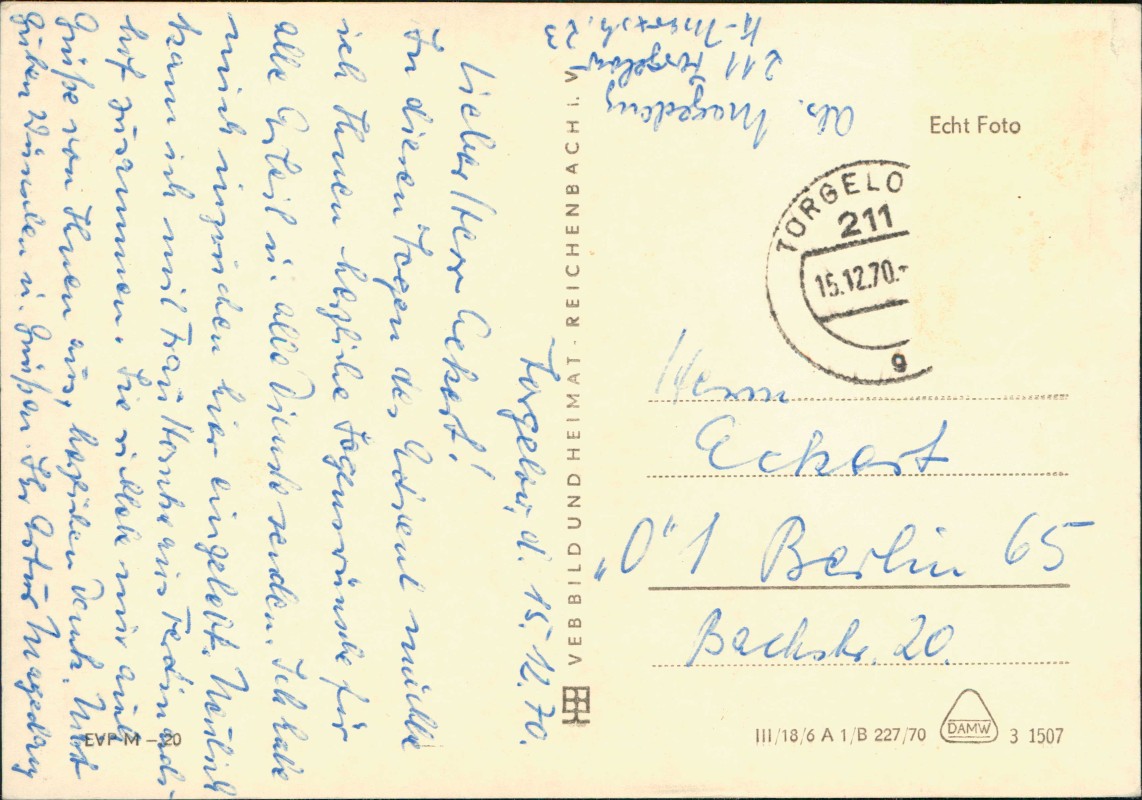 Torgelow, d. 15.12.70.
Lieber Herr Eckert!
In diesen Tagen des Advent möchte
ich Ihnen herzliche Segenswünsche für
alle Arbeit u. alle Dienste senden. Ich habe
mich inzwischen hier eingelebt. Neulich
kam ich mit Frau aus Ferdinands-
hof zusammen. Sie richtete mir auch
Grüße von Ihnen aus, herzlichen Dank. Mit
guten Wünschen u. Grüßen Ihr Artur Magedanz
EVP M –.20
VEB BILD UND HEIMAT · REICHENBACH I. V.
Abs. Magedanz
211 Torgelow
K-Marxstr. 23
Echt Foto
TORGELO
211
15.12.70.-
g
Herrn
Eckert
„O“ 1 Berlin 65
Bachstr. 20.
III/18/6 A 1/B 227/70
DAMW
3 1507